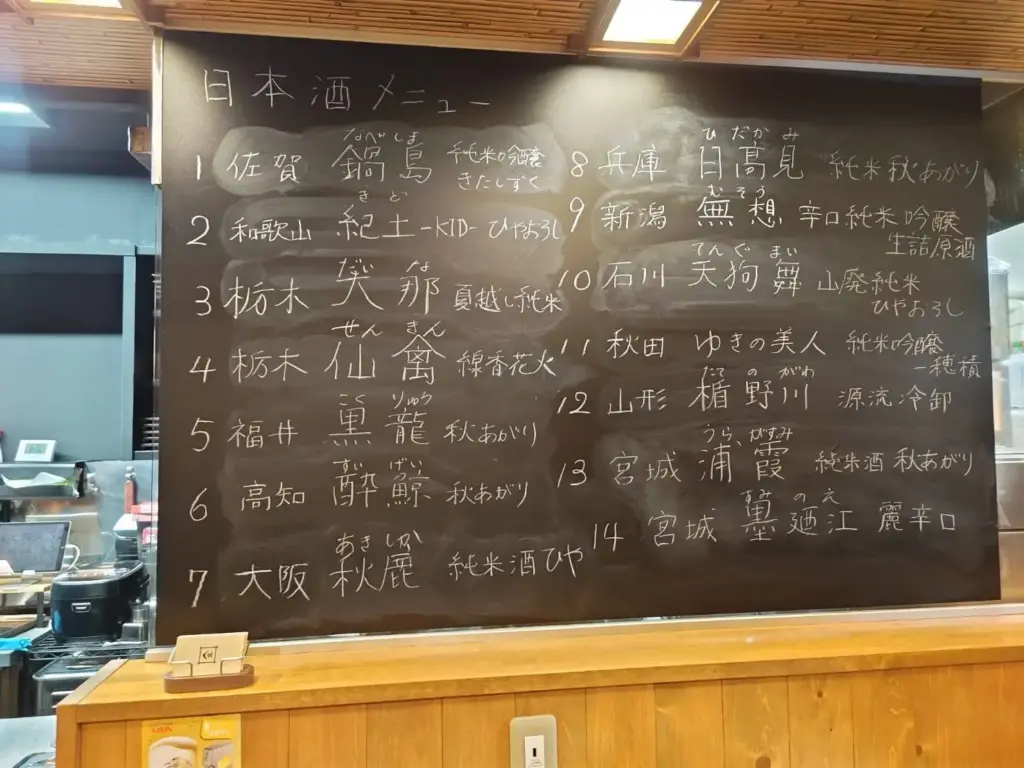 日本酒メニュー
なべしま
1 佐賀 鍋島 純米吟醸
きたしずく
きど
2 和歌山 紀土 -KID- ひやおろし
だいな
3 栃木 大那 夏越し純米
せんきん
4 栃木 仙禽 線香花火
こくりゅう
5 福井 黒龍 秋あがり
すいげい
6 高知 酔鯨 秋あがり
あきしか
7 大阪 秋鹿 純米酒ひや
ひだかみ
8 兵庫 日髙見 純米秋あがり
むそう
9 新潟 無想 辛口純米吟醸
生詰原酒
てんぐまい
10 石川 天狗舞 山廃純米
ひやおろし
11 秋田 ゆきの美人 純米吟醸
一穂積
たてのがわ
12 山形 楯野川 源流冷卸
うらがすみ
13 宮城 浦霞 純米酒 秋あがり
のえ
14 宮城 墨廼江 麗辛口